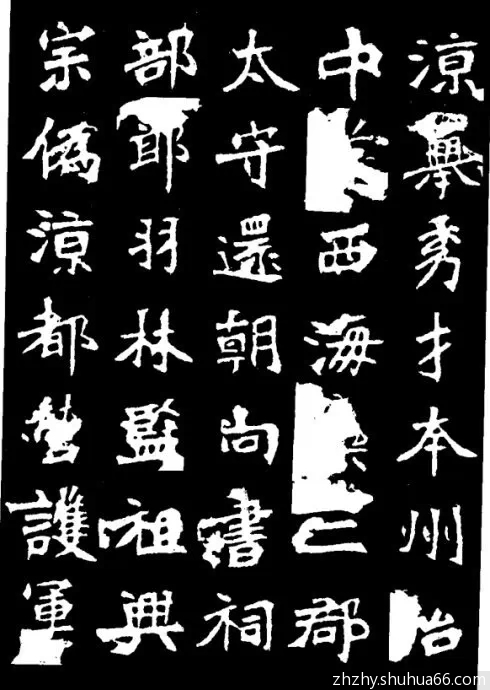 涼舉秀才本州治
中西海二郡
太守還朝尚書祠
部郎羽林監祖興
宗僞涼都營護軍
zhzhy.shuhua66.com